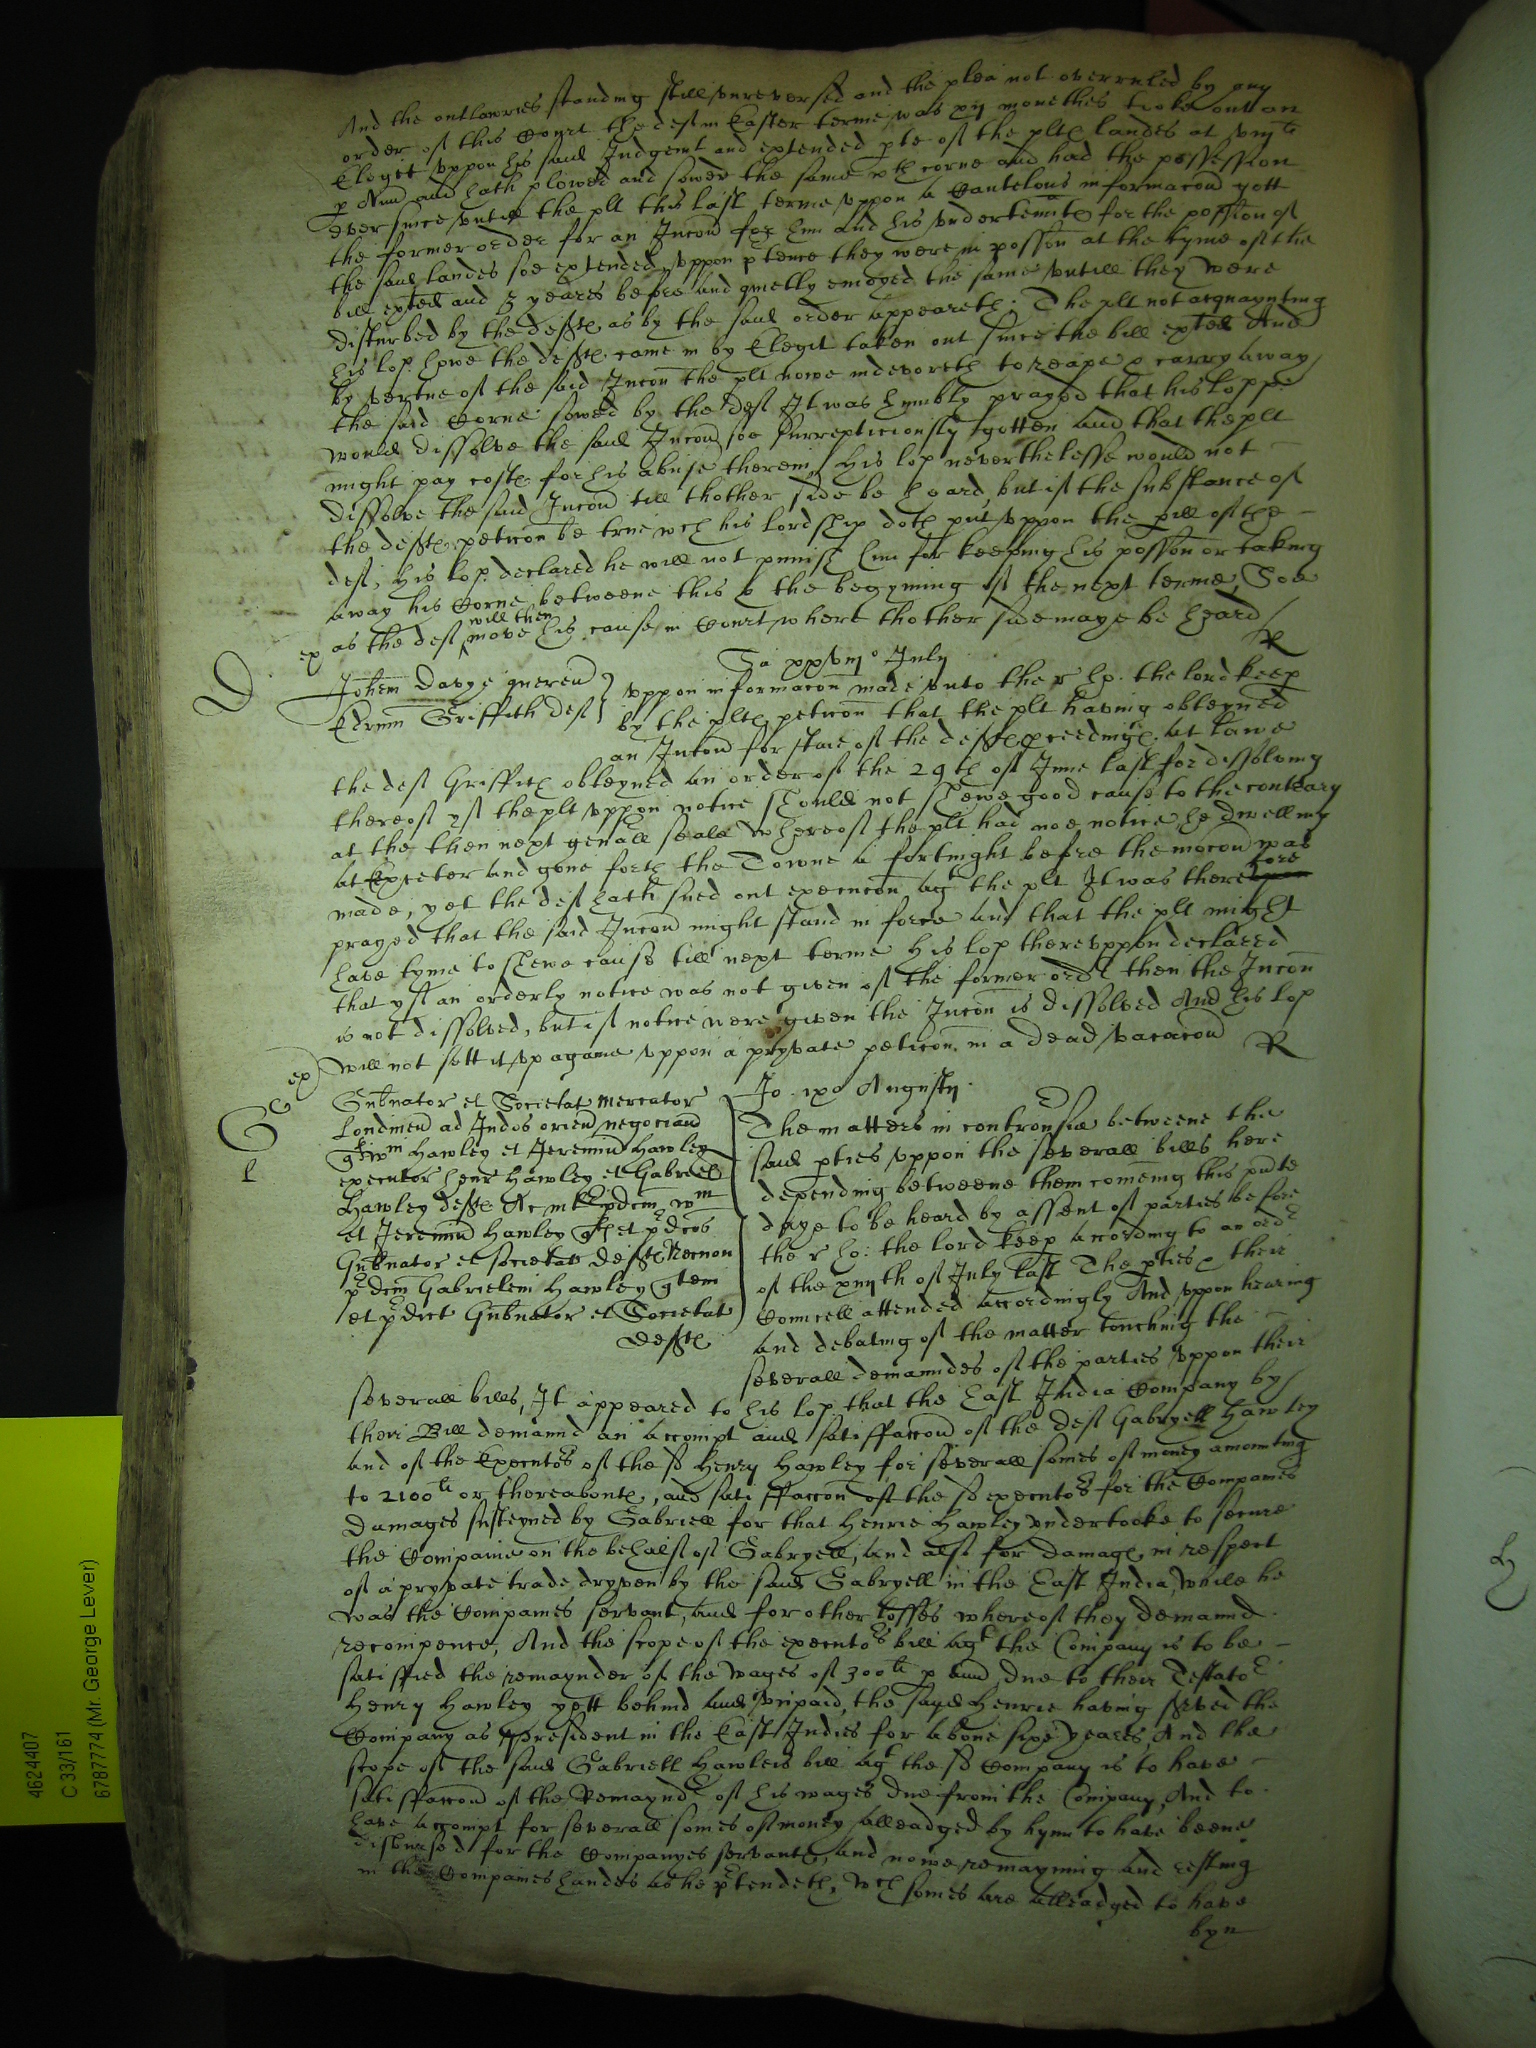 And the outlawries standing still unreversed and the plea not overruled by any
order of this Court the deft in Easter terme was xij monethes tooke out an
Elegit uppon his said Judgemt and extended pte of the pltes landes at viij li
p Ann and hath plowed and sowed the same wth corne and had the possession
ever since untill the plt this last terme uppon a Cautelous informacon gott
the former order for an Incon for him and his undertennts for the possion of
the said landes soe extended uppon ptence they were in posson at the tyme of the
bill exted and 3 yeares before and quietly enioyed the same untill they were
disturbed by the deftes as by the said order appeareth. The plt not acquaynting
his lop. howe the deftes came in by Elegit taken out since the bill exted And
by vertue of the said Incon the plt nowe indevoreth to reape & carry away
the said Corne sowed by the deft It was humbly prayed that his lopp
would dissolve the said Incon soe surrepticiously gotten And that the plt
might pay costes for his abuse therein His lop neverthelesse would not
dissolve the said Incon till thother side be heard, but if the substance of
the deftes peticon be true wch his lordship doth put uppon the pill of the
deft, His lop. declared he will not punish him for keeping his posson or taking
away his Corne betweene this & the begynning of the next terme, Soe
ex as the deft will then move his cause in Court where thother side maye be heard
R
D
Sa xxviijo July
Johem Davye queren
Edrum Griffith deft
uppon informacon made unto the r ho. the lord keep
by the pltes peticon that the plt having obteyned
an Incon for staie of the deftes pceedinges at lawe
the deft Griffith obteyned an order of the 29th of June last for dissolving
thereof yf the plt uppon notice should not shewe good cause to the contrary
at the then next genall seale whereof the plt had noe notice he dwelling
at Exceter and gone forth the Towne a fortnight before the mocon was
made, yet the deft hath sued out execucon agt the plt It was therefore
prayed that the said Incon might stand in force and that the plt might
have tyme to shewe cause till next terme His lop thereuppon declared
that yf an orderly notice was not given of the former ordr then the Incon
is not dissolved, but if notice were given the Incon is dissolved And his lop
ex will not sett it up againe uppon a pryvate peticon in a dead vacacon R
G
Jo. ixo Augusty.
Gubnator et Societat mercator
Londinen ad Indos orien negociand
Wm Hawley et Jeremiu Hawley
executor Henr Hawley et Gabriell
Hawley deftes Ac int Epdcm Wm
et Jeremiu Hawley et pdcos
Gubnator et Societat deftes Necnon
pdcm Gabrielem Hawley
et pdict Gubnator et Societat
deftes
The matters in controusie betweene the
said pties uppon the severall bills here
depending betweene them coming this pnte
daye to be heard by assent of parties before
the r ho: the lord keep according to an ordr
of the xiiijth of July last The pties & their
Councell attended accordingly And uppon hearing
and debating of the matter touching the
severall demaundes of the parties uppon their
severall bills, It appeared to his lop that the East India Company by
their Bill demaund an accompt and satisfaccon of the deft Gabryell Hawley
and of the Executors of the sd Henry Hawley for severall somes of money amounting
to 2100 li or thereaboutes, and satisfaccon of the sd executors for the Companies
damages susteyned by Gabriell for that Henrie Hawley undertooke to secure
the Companie on the behalf of Gabryell, and also for damages in respect
of a pryvate trade dryven by the said Gabryell in the East India, while he
was the Companies servant, and for other losses whereof they demaund
recompence, And the scope of the executors bill agt the Company is to be
satisfied the remaynder of the wages of 300 li p ann due to their Testator
Henry Hawley yett behind and unpaid, the sayd Henrie having served the
Company as President in the East Indies for above sixe yeares And the
scope of the said Gabriell Hawleis bill agt the sd Company is to have
satisfaccon of the Remayndr of his wages due from the Company, And to
have accompt for severall somes of money alleadged by hym to have beene
disbursed for the Companyes servants, and nowe remayning and resting
in the Companies handes as he ptendeth, wch somes are alleadged to have
byn
4624407
C 33/161
6787774 (Mr. George Lever)